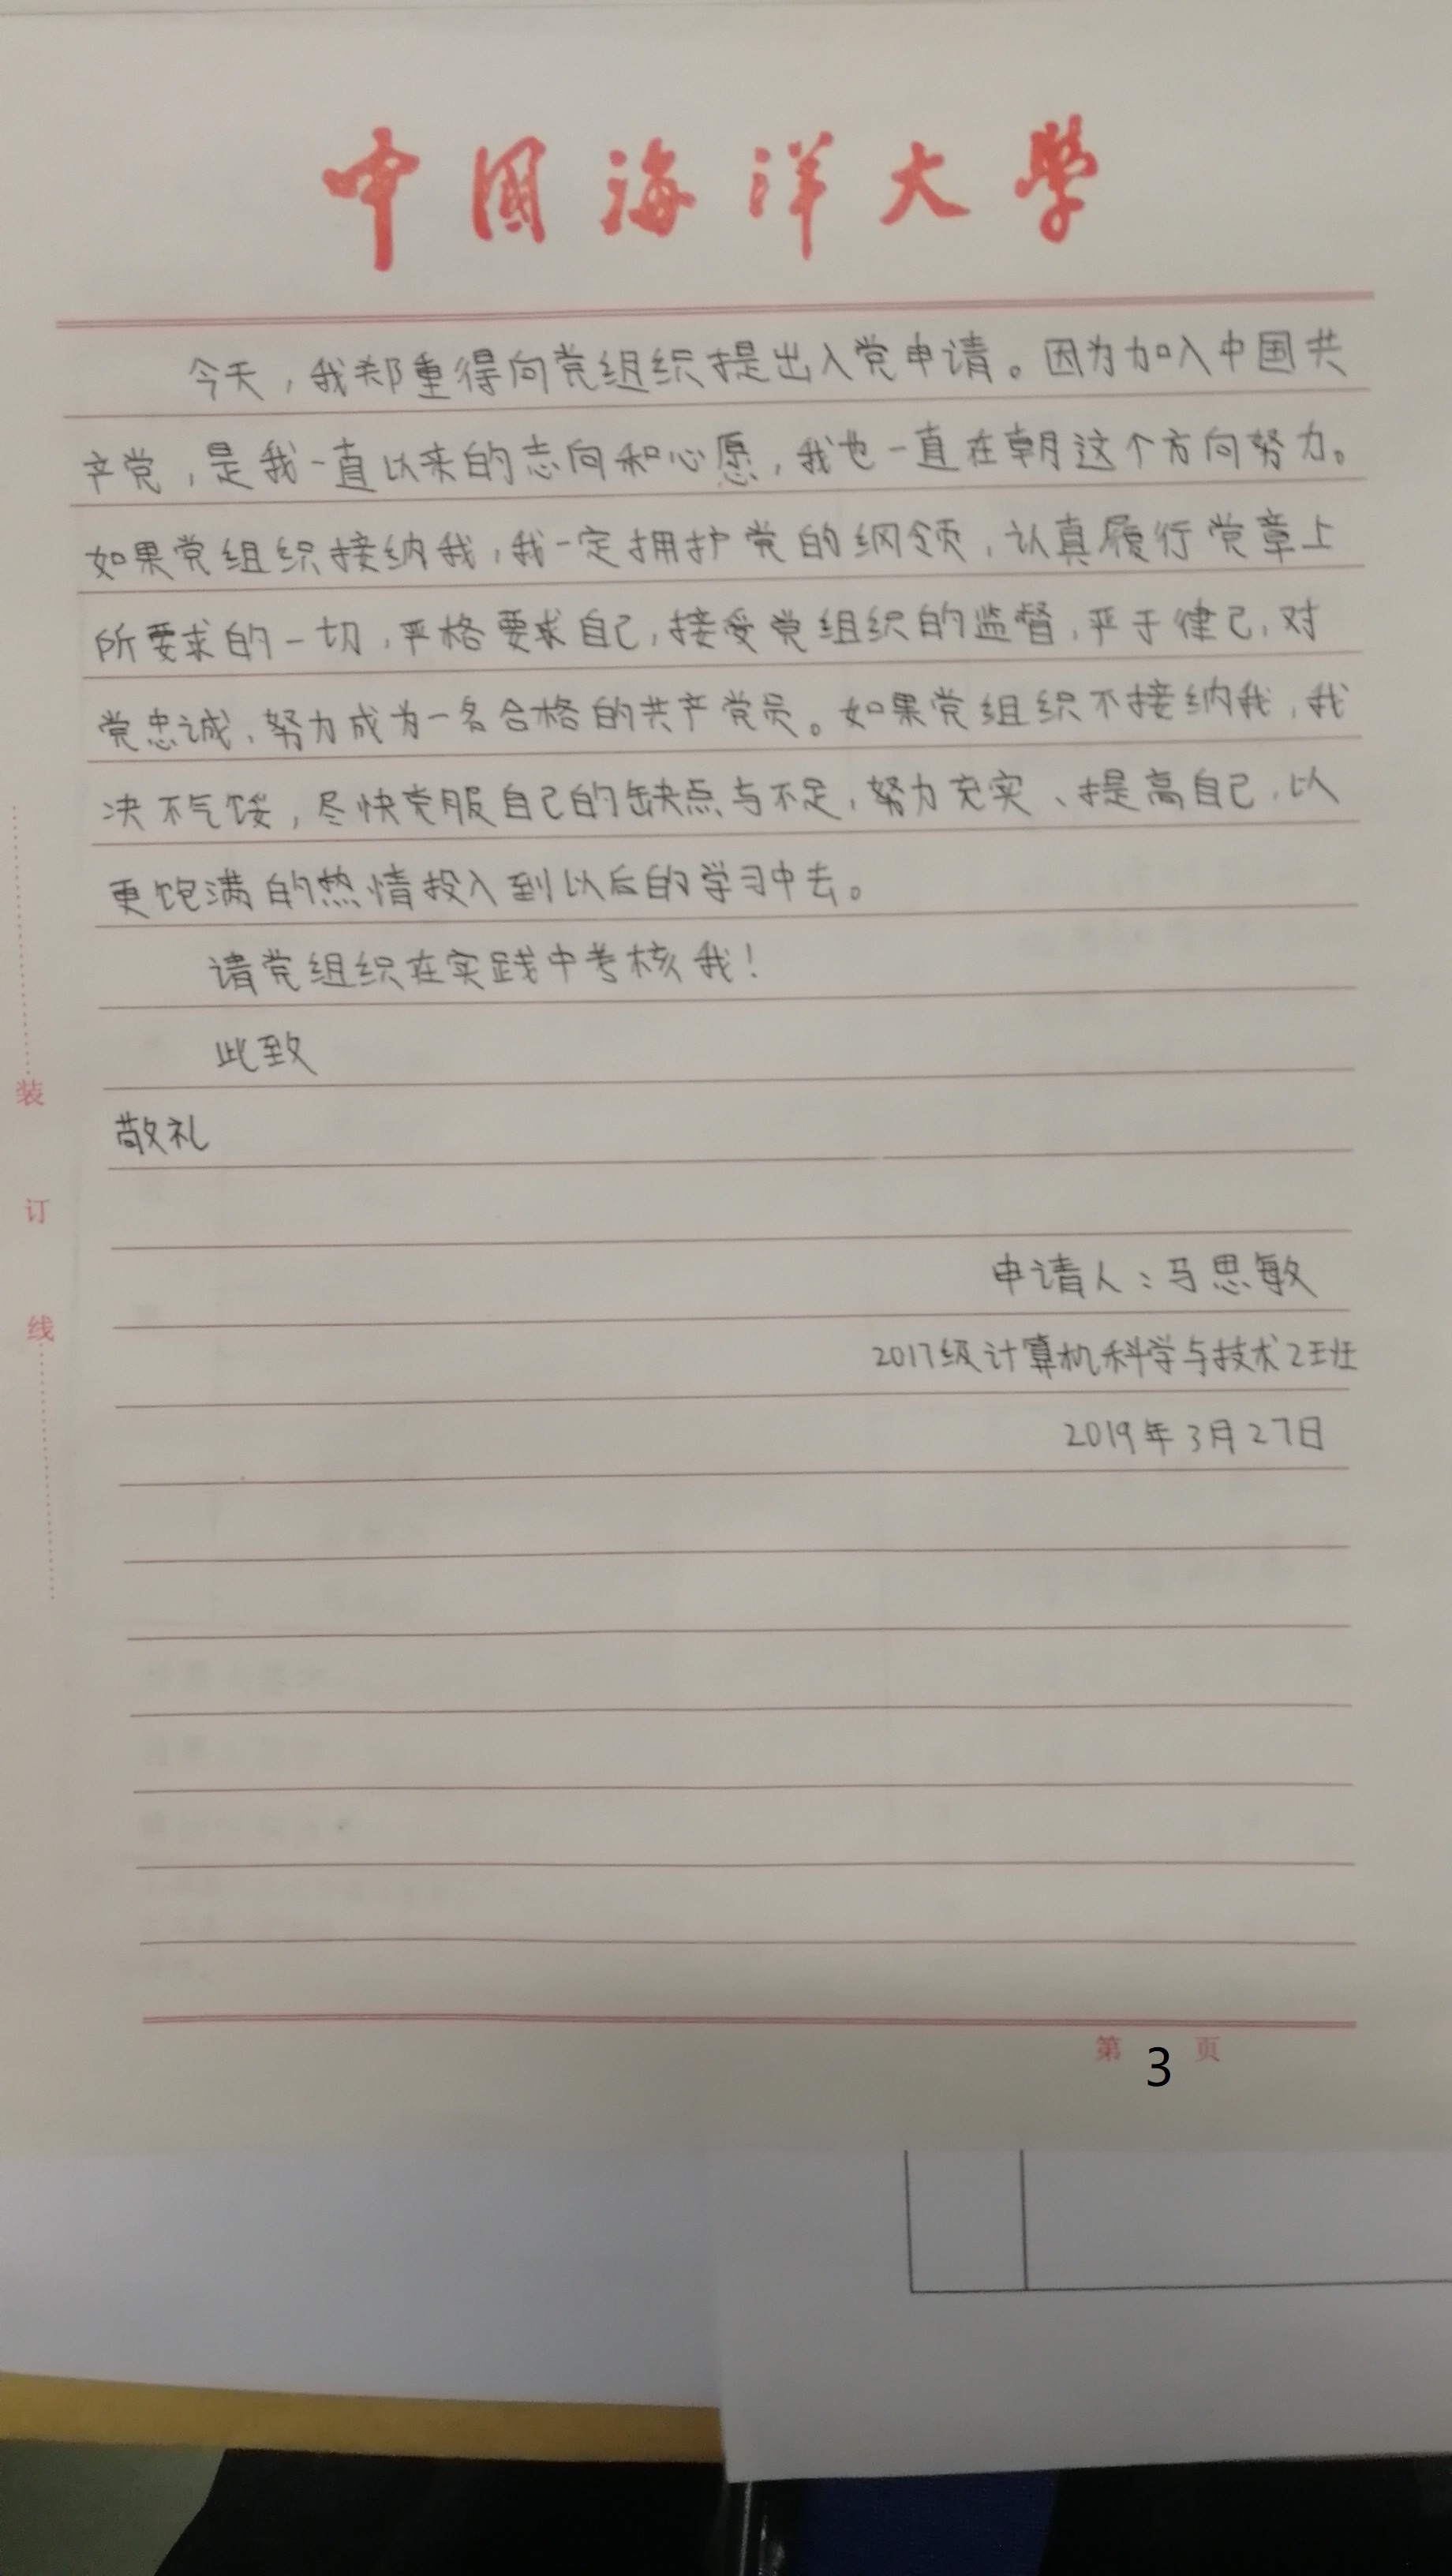 中國海洋大學
今天，我郑重得向党组织提出入党申请。因为加入中国共
产党，是我一直以来的志向和心愿，我也一直在朝这个方向努力。
如果党组织接纳我，我一定拥护党的纲领，认真履行党章上
所要求的一切，严格要求自己，接受党组织的监督，严于律己，对
党忠诚、努力成为一名合格的共产党员。如果党组织不接纳我，我
决不气馁，尽快克服自己的缺点与不足，努力充实、提高自己，以
更饱满的热情投入到以后的学习中去。
请党组织在实践中考核我！
此致
敬礼
申请人：马思敏
2017级计算机科学与技术2班
2019年3月27日
装
订
线
第 3 页